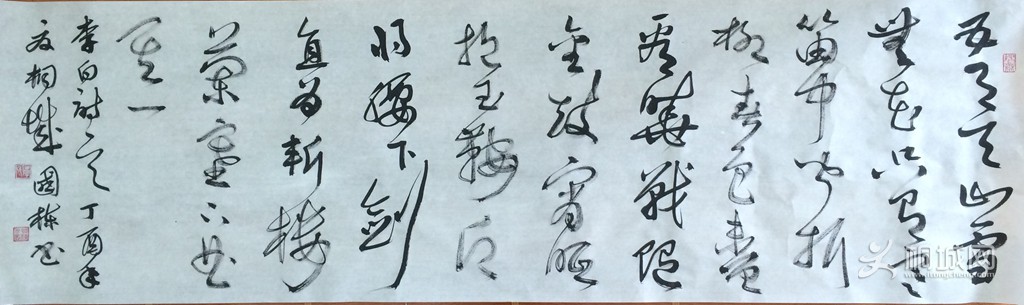 五月天山雪
無花只有寒
笛中聞折
柳春色未曾
看曉戰隨
金鼓宵眠
抱玉鞍願
將腰下劍
直為斬樓
蘭塞下曲
其一
李白詩 丁酉年
於桐城 國棟書
桐城网